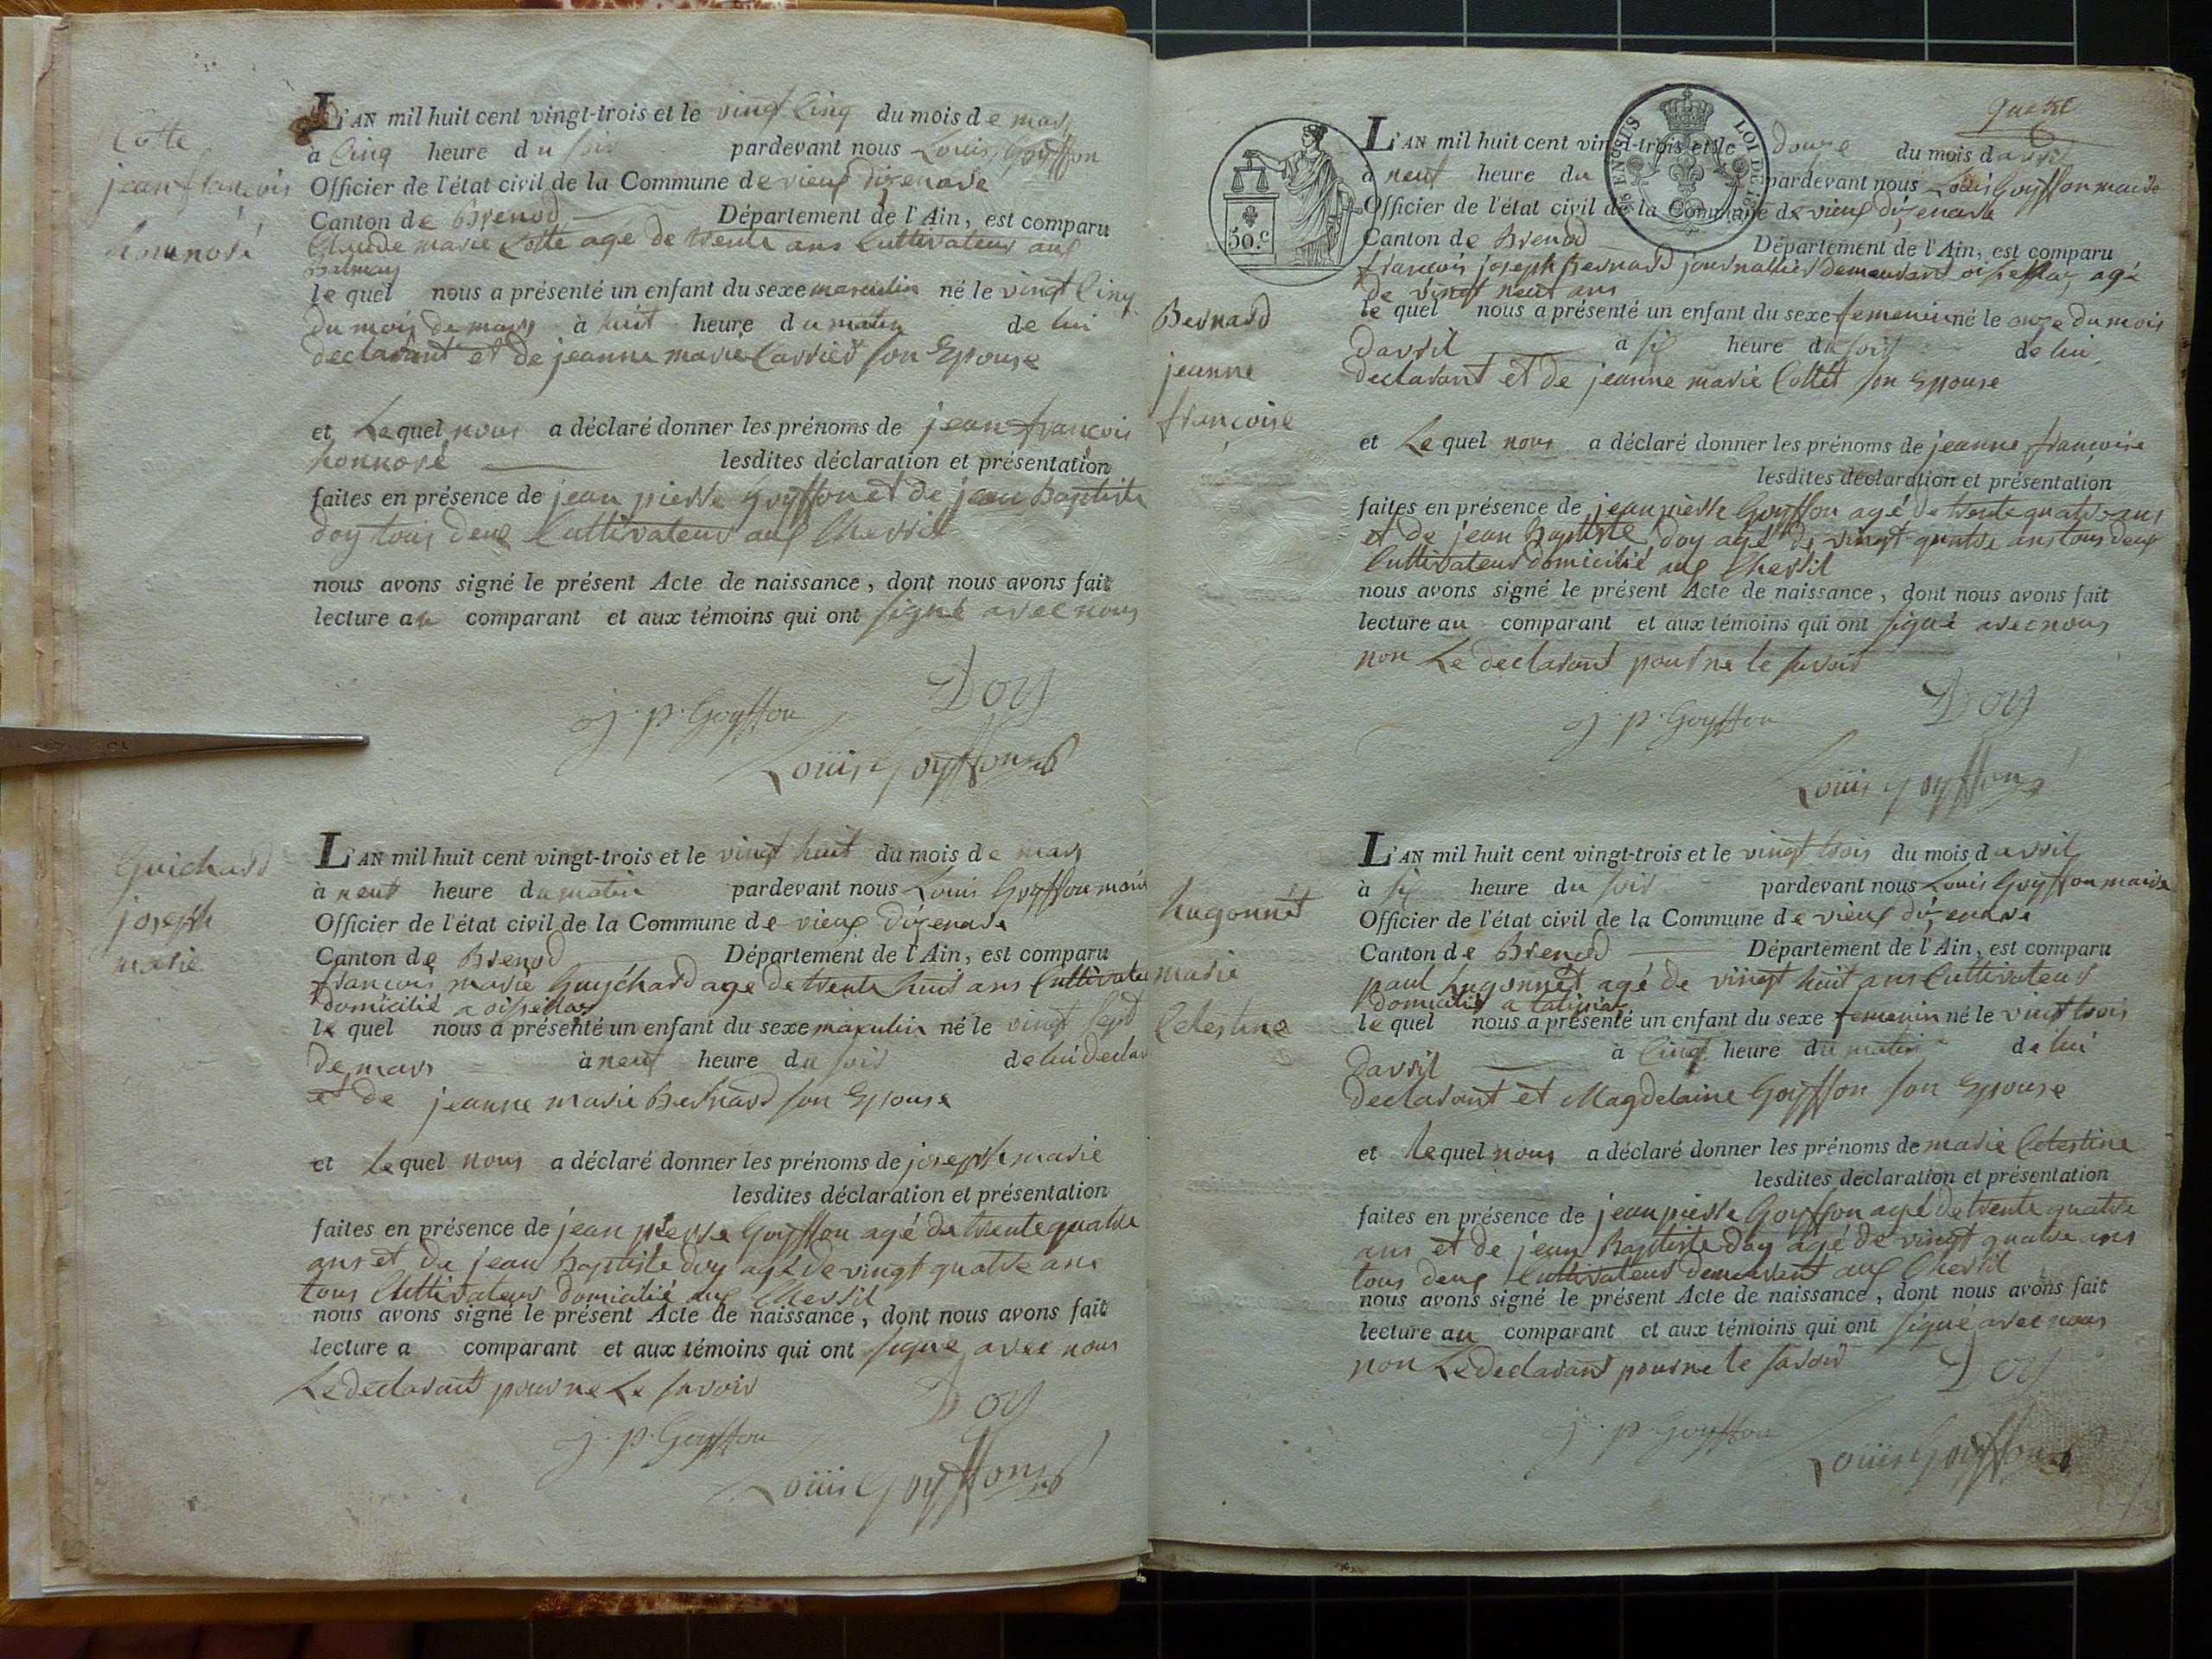 Cotte
jean françois
honnoré
L'AN mil huit cent vingt-trois et le vingt Cinq du mois de mars
à Cinq heure du soir pardevant nous Louis Goyffon
Officier de l'état civil de la Commune de vieux dizenave
Canton de Brenod Département de l'Ain, est comparu
Claude marie Cotte age de trente ans Cultivateur aux
Balmay
le quel nous a présenté un enfant du sexe masculin né le vingt Cinq
du mois de mars à huit heure du matin de lui
declarant et de jeanne marie Carrier son Epouse
et Le quel nous a déclaré donner les prénoms de jean françois
honnoré lesdites déclaration et présentation
faites en présence de jean pierre Goyffon et de jean Baptiste
doy tous deux Cultivateur aux Chevril
nous avons signé le présent Acte de naissance, dont nous avons fait
lecture au comparant et aux témoins qui ont signé avec nous
Doy
j. p. Goyffon
Louis Goyffon
Guichard
joseph
marie
L'AN mil huit cent vingt-trois et le vingt huit du mois de mars
à neuf heure du matin pardevant nous Louis Goyffon maire
Officier de l'état civil de la Commune de vieux dizenave
Canton de Brenod Département de l'Ain, est comparu
françois marie Guychard age de trente huit ans Cultivateu
domicilié a oisselaz
le quel nous a présenté un enfant du sexe masculin né le vingt sept
de mars à neuf heure du soir de lui declar
et de jeanne marie Bernard son Epouse
et Le quel nous a déclaré donner les prénoms de joseph marie
lesdites déclaration et présentation
faites en présence de jean pierre Goyffon agé de trente quatre
ans et de jean Baptiste doy agé de vingt quatre ans
tous Cultivateur domicilié aux Chevril
nous avons signé le présent Acte de naissance, dont nous avons fait
lecture a comparant et aux témoins qui ont signé avec nous
Le declarant pour ne Le savoir
Doy
j. p. Goyffon
Louis Goyffon
quatre
50.c
LOI DE
Bernard
jeanne
francoise
L'AN mil huit cent vingt-trois et le douze du mois davril
à neuf heure du pardevant nous Louis Goyffon maire
Officier de l'état civil de la Commune de vieux dizenave
Canton de Brenod Département de l'Ain, est comparu
francois joseph Bernard journallier demeurant oisselaz agé
de vingt neuf ans
le quel nous a présenté un enfant du sexe femenin né le onze du mois
davril à six heure du soir de lui
declarant et de jeanne marie Collet son Epouse
et Le quel nous a déclaré donner les prénoms de jeanne francoise
lesdites déclaration et présentation
faites en présence de jean pierre Goyffon agé de trente quatre ans
et de jean Baptiste doy agé de vingt quatre ans tous deux
Cultivateur domicilié aux Chevril
nous avons signé le présent Acte de naissance, dont nous avons fait
lecture au comparant et aux témoins qui ont signé avec nous
non Le declarant pour ne le savoir
Doy
j. p. Goyffon
Louis Goyffon
hugonnet
marie
Celestine
L'AN mil huit cent vingt-trois et le vingt trois du mois davril
à six heure du soir pardevant nous Louis Goyffon maire
Officier de l'état civil de la Commune de vieux dizenave
Canton de Brenod Département de l'Ain, est comparu
paul hugonnet agé de vingt huit ans Cultivateur
domicilié a
le quel nous a présenté un enfant du sexe femenin né le vingt trois
davril à Cinq heure du matin de lui
declarant et Magdelaine Goyffon son Epouse
et lequel nous a déclaré donner les prénoms de marie Celestine
lesdites declaration et présentation
faites en présence de jean pierre Goyffon agé de trente quatre
ans et de jean Baptiste doy agé de vingt quatre ans
tous deux Cultivateur demeurant aux Chevril
nous avons signé le présent Acte de naissance, dont nous avons fait
lecture au comparant et aux témoins qui ont signé avec nous
non Le declarant pour ne le savoir
Doy
j. p. Goyffon
Louis Goyffon